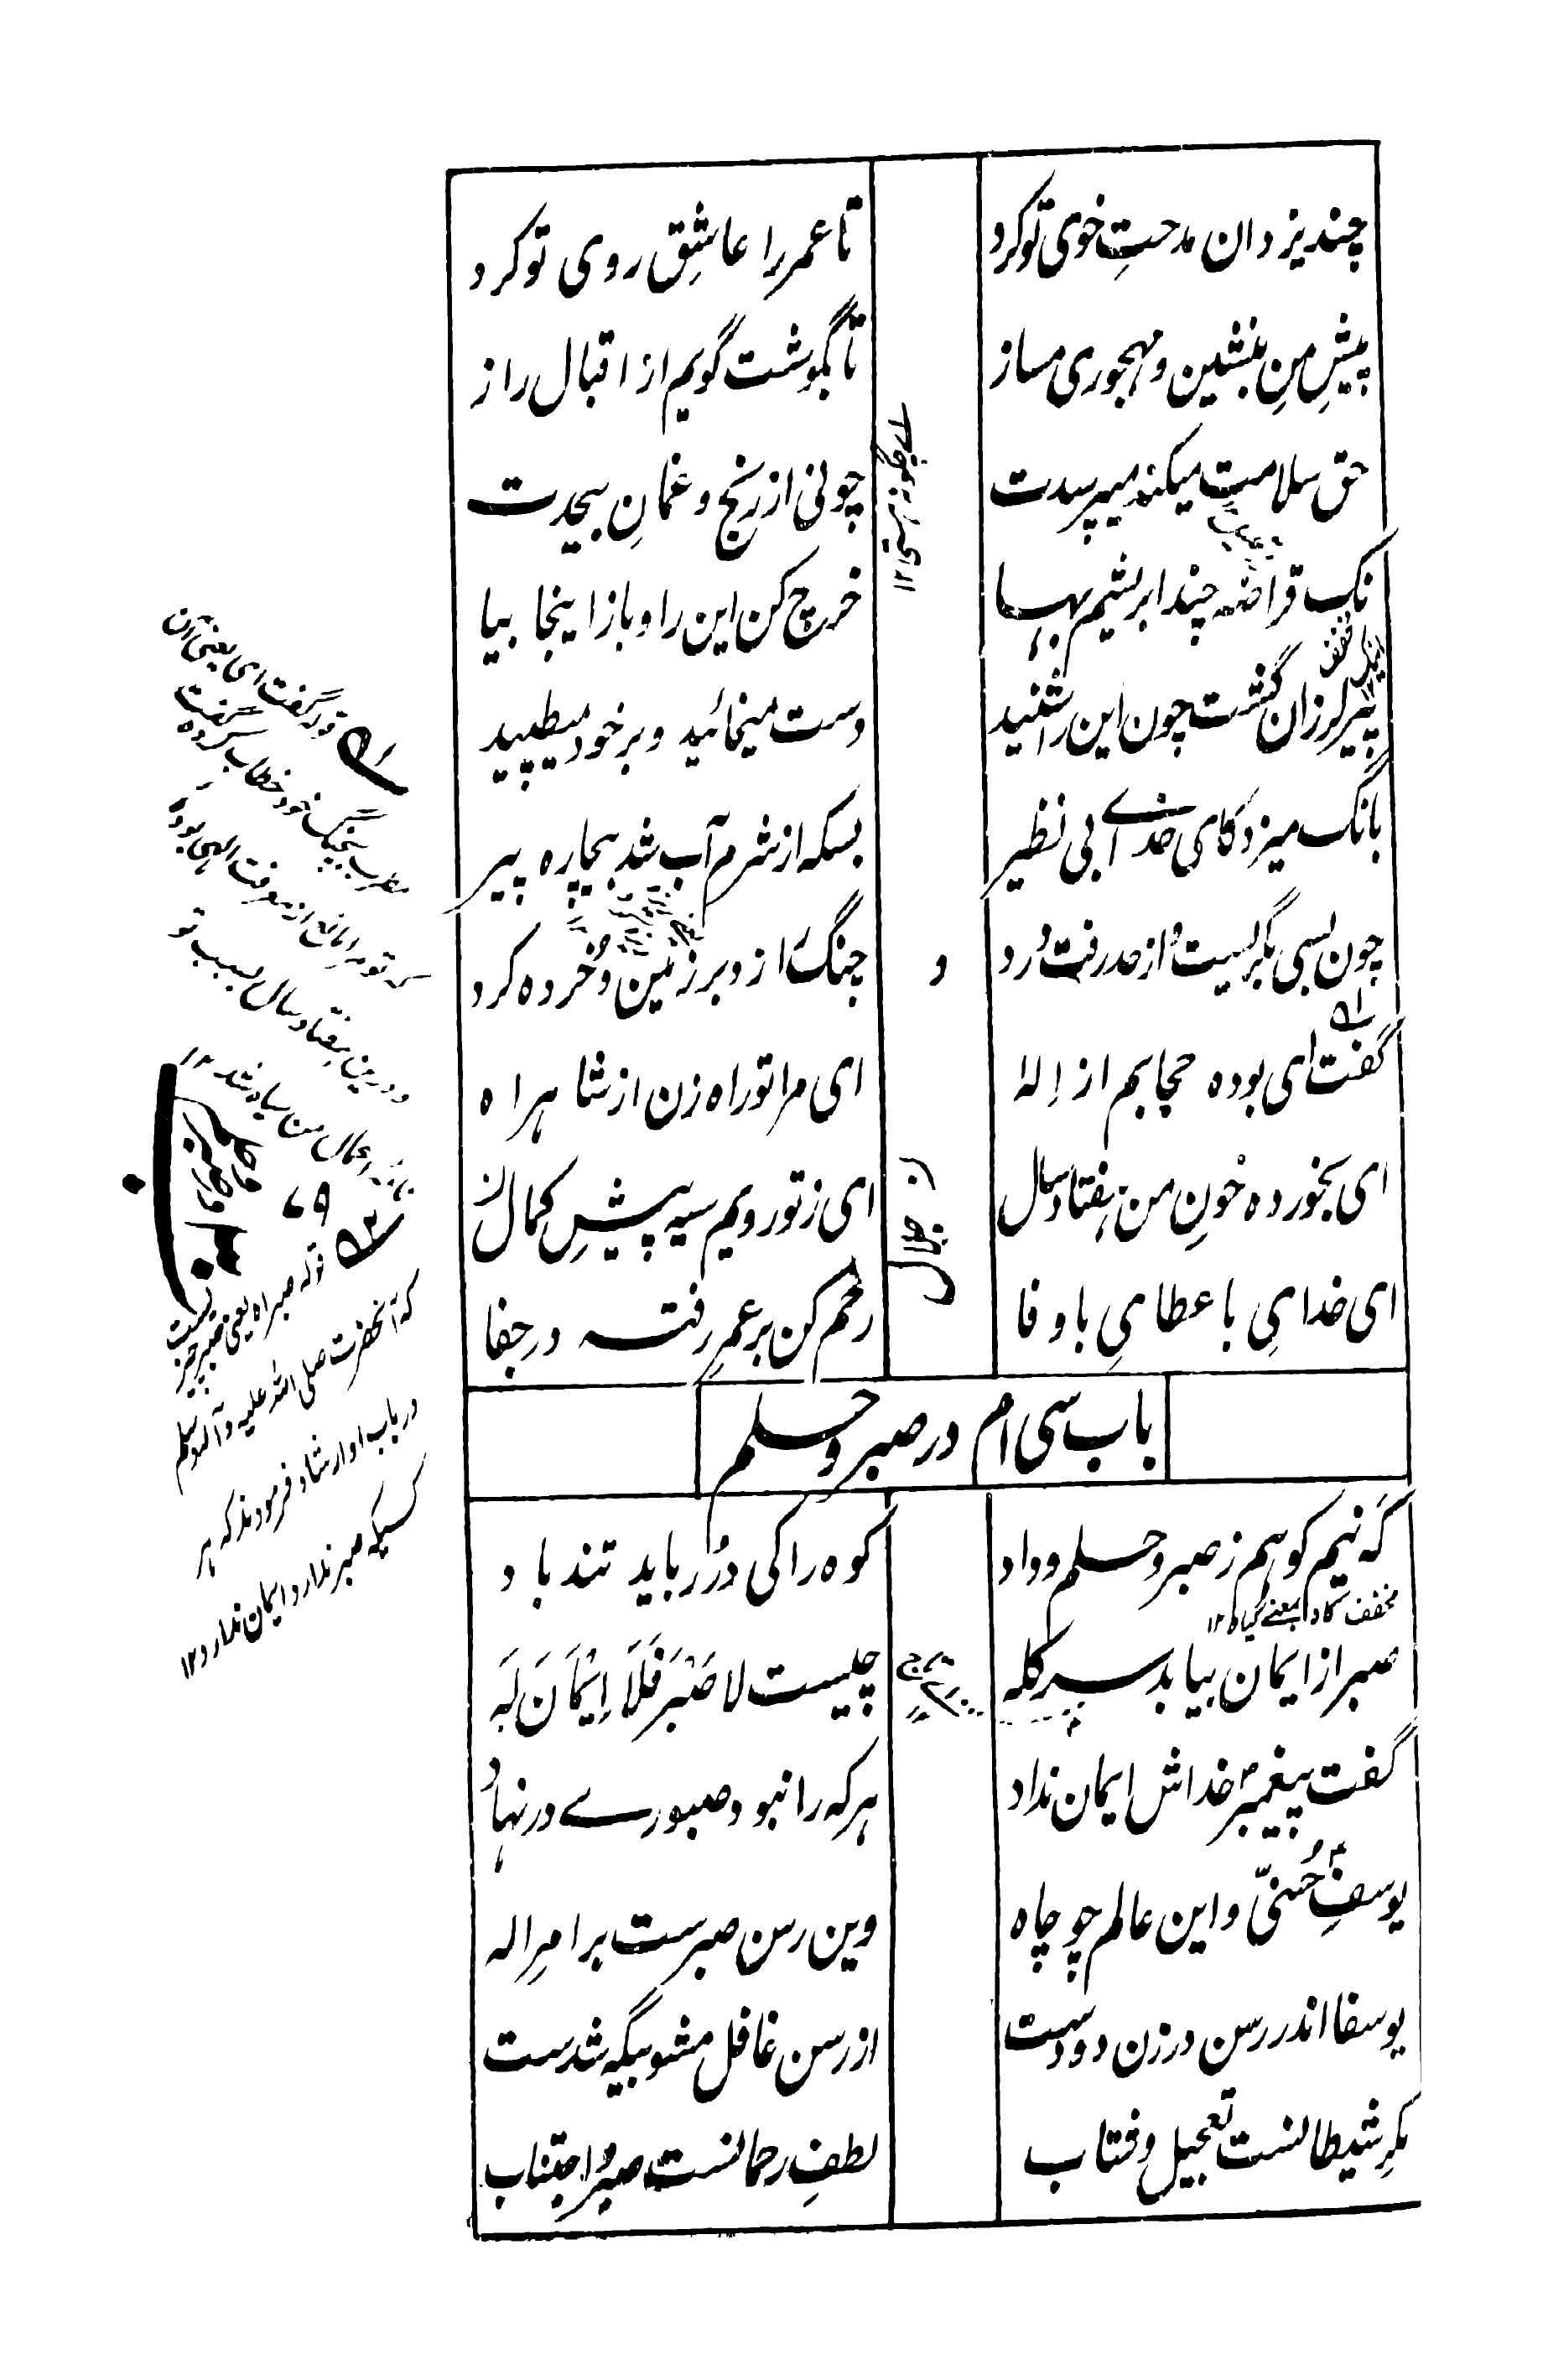 چند یزدان مدحتِ خوی تو کرد
تا عمر را عاشقِ روی تو کرد
پیشِ من بنشین و مهجوری مساز
تا بگوشت گویم از اقبال راز
حق سلامت میکند میپرسدت
چونی از رنج و غمانِ بیحدت
نک قراضه چند ابریشم بها
خرج کن این را و باز اینجا بیا
پیر لرزان گشت چون این را شنید
دست میخائید و بر خود میطپید
بانگ میزد کای خدای بی نظیر
بسکه از شرم آب شد بیچاره پیر
چون بسی بگریست و از حد رفت درد
چنگ را زد بر زمین و خرده کرد
گفت ای بوده حجابم از اله
ای مرا تو راه زن از شاهراه
ای بخورده خونِ من هفتاد سال
ای ز تو رویم سیه پیشِ کمال
ای خدایِ با عطایِ با وفا
رحم کن بر عمرِ رفته در جفا
باب سی ام در صبر و حلم
که نیم کوهم ز صبر و حلم و داد
کوه را کی در رباید تند باد
مخفف کلاه بمعنے گیاه ۱۲
صبر از ایمان بیابد سر کله
چیست لا صَبْرَ فَلَا اِیْمَانَ لَه
گفت پیغمبر خداش ایمان نداد
هر که را نبود صبوری در نهاد
یوسفِ حُسنیّ و این عالم چو چاه
وین رسن صبرست بر امرِ اله
یوسفا اندر رسن در زن دو دست
از رسن غافل مشو بیگه شدست
مکرِ شیطانست تعجیل و شتاب
لطفِ رحمانست صبر و اجتناب
ای چگونه هستی ۱۲
قوله گفت ای یعنی آن
مطرب بچنگ خود خطاب کرده گفت
که تو مرا مانع از معرفت الهی بودی
و درین هفتاد سال بسبب تو
نامه اعمال من سیاه شد ۱۲
قوله صبر اه یعنی صبر چیزیست
که آنحضرت صلی الله علیه و آله وسلم
در باب او ارشاد فرمودند که هر
کسیکه صبر ندارد ایمان ندارد ۱۲